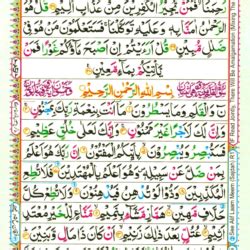 رَحِمَنَا فَمَنْ يُّجِيْرُ الْكٰفِرِيْنَ مِنْ عَذَابٍ اَلِيْمٍ ۝ قُلْ هُوَ
الرَّحْمٰنُ اٰمَنَّا بِهٖ وَعَلَيْهِ تَوَكَّلْنَا فَسَتَعْلَمُوْنَ مَنْ هُوَ فِيْ
ضَلٰلٍ مُّبِيْنٍ ۝ قُلْ اَرَءَيْتُمْ اِنْ اَصْبَحَ مَآؤُكُمْ غَوْرًا فَمَنْ
يَّاْتِيْكُمْ بِمَآءٍ مَّعِيْنٍ ۝
بِسْمِ اللّٰهِ الرَّحْمٰنِ الرَّحِيْمِ
نٓ وَالْقَلَمِ وَمَا يَسْطُرُوْنَ ۝ مَآ اَنْتَ بِنِعْمَةِ رَبِّكَ بِمَجْنُوْنٍ ۝
وَاِنَّ لَكَ لَاَجْرًا غَيْرَ مَمْنُوْنٍ ۝ وَاِنَّكَ لَعَلٰى خُلُقٍ عَظِيْمٍ ۝
فَسَتُبْصِرُ وَيُبْصِرُوْنَ ۝ بِاَيِّكُمُ الْمَفْتُوْنُ ۝ اِنَّ رَبَّكَ هُوَ اَعْلَمُ
بِمَنْ ضَلَّ عَنْ سَبِيْلِهٖ وَهُوَ اَعْلَمُ بِالْمُهْتَدِيْنَ ۝ فَلَا تُطِعِ
الْمُكَذِّبِيْنَ ۝ وَدُّوْا لَوْ تُدْهِنُ فَيُدْهِنُوْنَ ۝ وَلَا تُطِعْ كُلَّ
حَلَّافٍ مَّهِيْنٍ ۝ هَمَّازٍ مَّشَّآءٍۭ بِنَمِيْمٍ ۝ مَّنَّاعٍ لِّلْخَيْرِ مُعْتَدٍ
Read Jointly, There Will Be Amalgamation (Mixing The
See Learn Meem